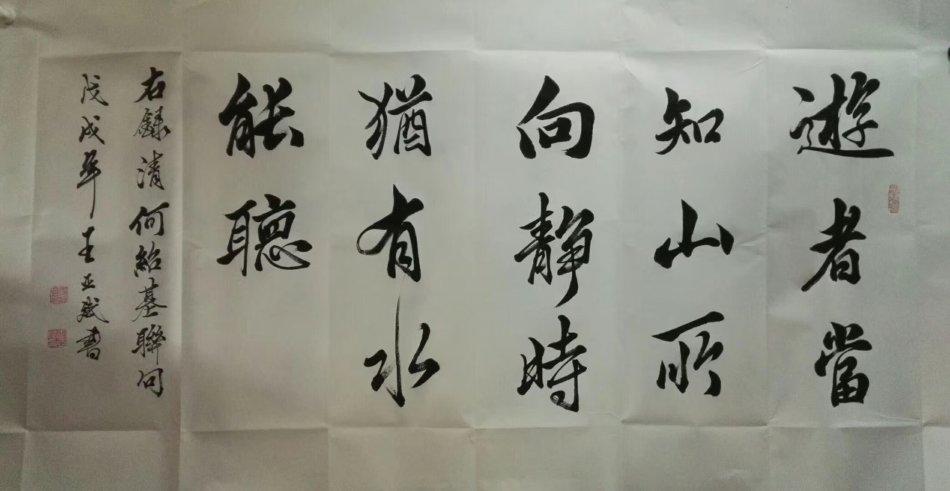 遊者當
知山所
向靜時
猶有水
能聽
右錄清何紹基聯句
戊戌年王亞斌書